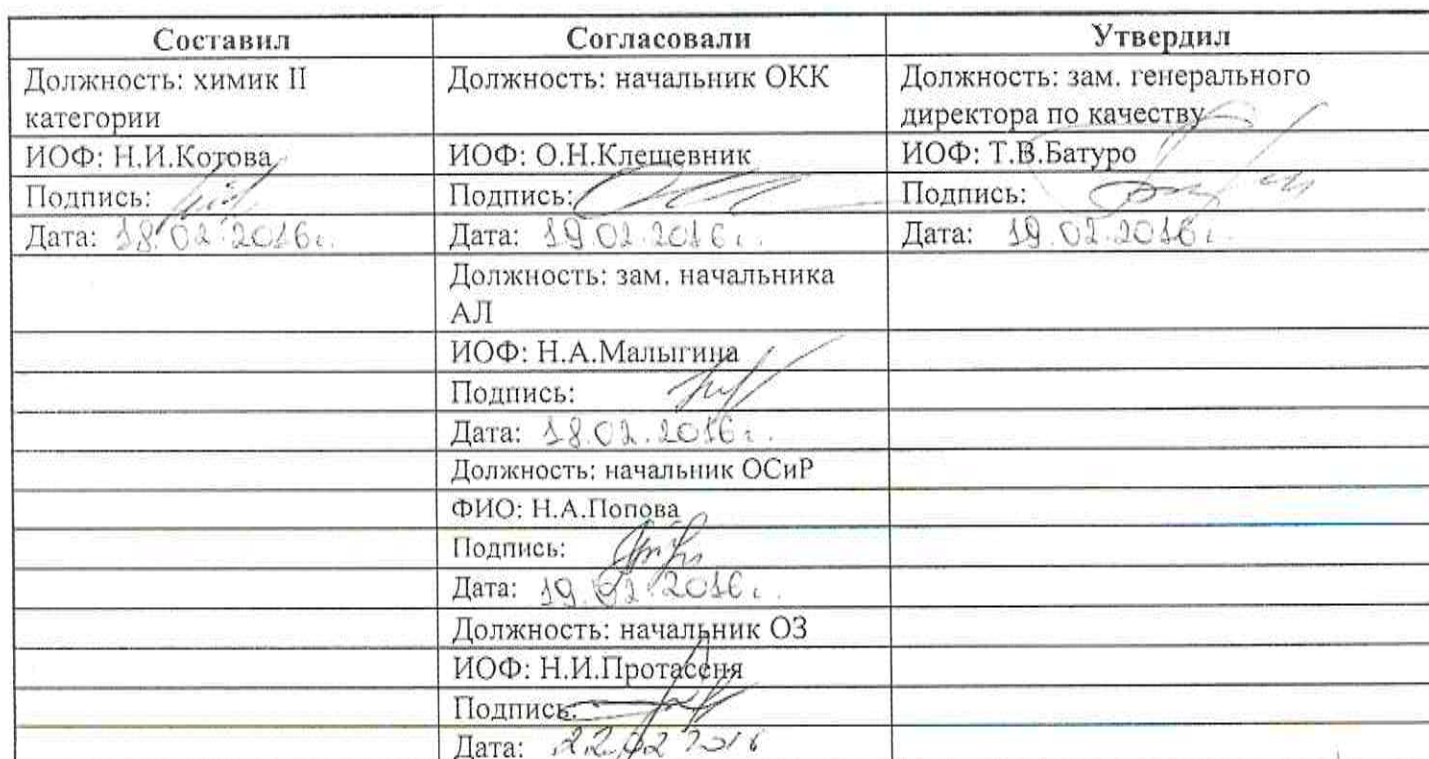 Составил Согласовали Утвердил
Должность: химик II Должность: начальник ОКК Должность: зам. генерального
категории директора по качеству
ИОФ: Н.И.Котова ИОФ: О.Н.Клещевник ИОФ: Т.В.Батуро
Подпись: Подпись: Подпись:
Дата: 18.02.2016г. Дата: 19.02.2016г. Дата: 19.02.2016г.
Должность: зам. начальника
АЛ
ИОФ: Н.А.Малыгина
Подпись:
Дата: 18.02.2016г.
Должность: начальник ОСиР
ФИО: Н.А.Попова
Подпись:
Дата: 19.02.2016г.
Должность: начальник ОЗ
ИОФ: Н.И.Протасеня
Подпись:
Дата: 22.02 2016